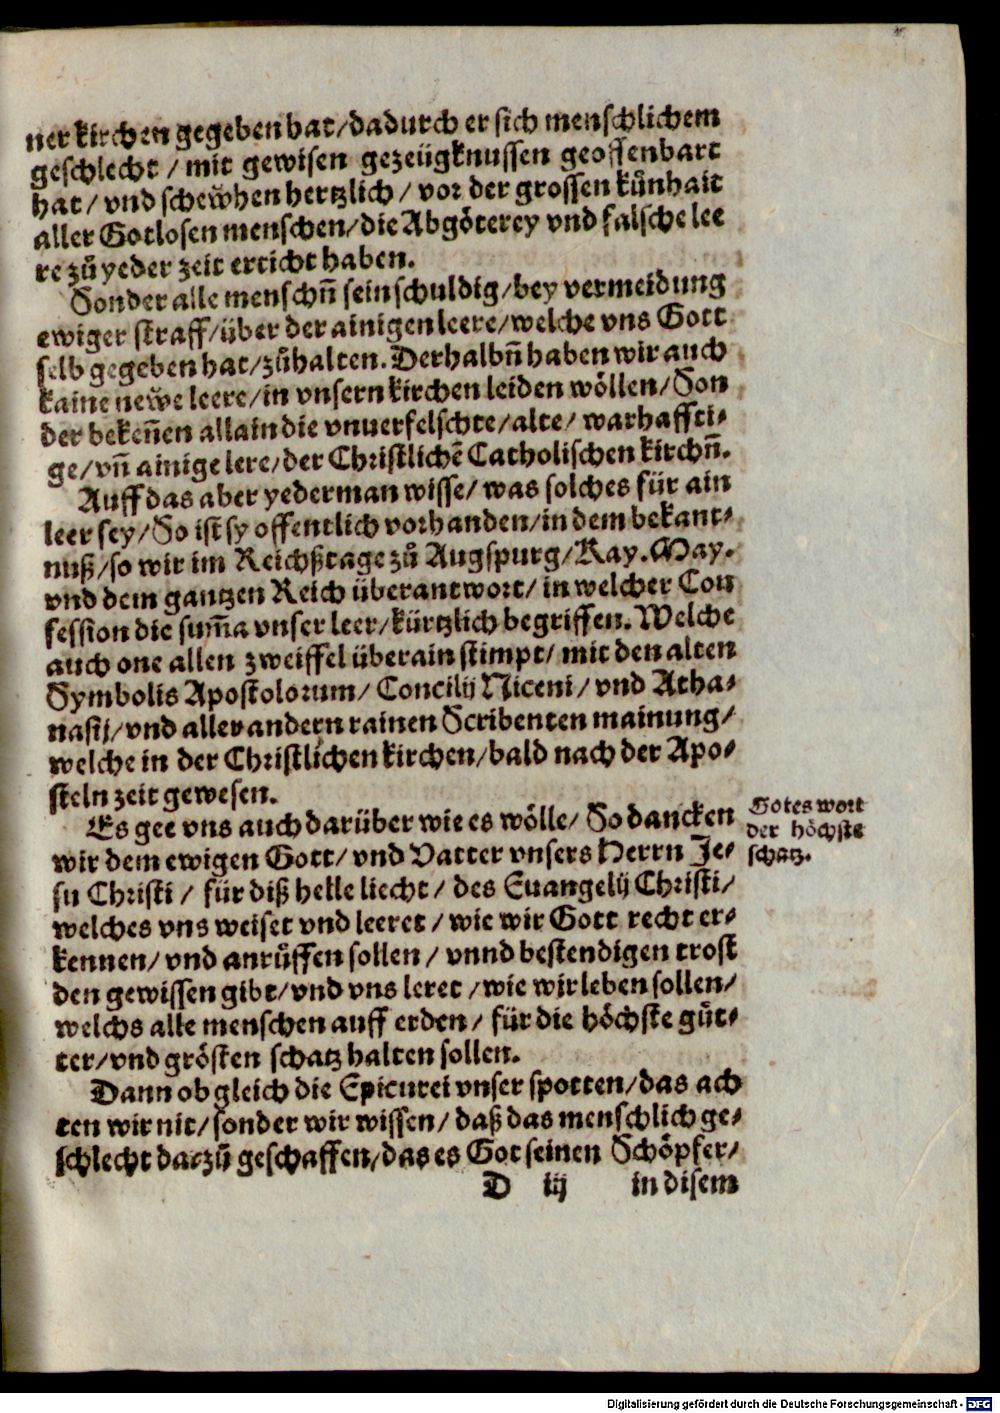 ner kirchen gegeben hat/dadurch er sich menschlichem
geschlecht / mit gewisen gezeügknussen geoffenbart
hat/ vnd schewhen hertzlich/ vor der grossen künhait
aller Gotlosen menschen/die Abgöterey vnd falsche lee
re zů yeder zeit erticht haben.
Sonder alle menschñ sein schuldig/bey vermeidung
ewiger straff/über der ainigen leere/welche vns Gott
selb gegeben hat/zůhalten. Derhalbñ haben wir auch
kaine newe leere/in vnsern kirchen leiden wöllen/Son
der bekeñen allain die vnuerfelschte/alte/ warhaffti-
ge/vñ ainige lere/der Christlichē Catholischen kirchñ.
Auff das aber yederman wisse/ was solches für ain
leer sey/So ist sy offentlich vorhanden/in dem bekant-
nuß/so wir im Reichßtage zů Augspurg/Kay. May.
vnd dem gantzen Reich überantwort/ in welcher Con
fession die sum̄a vnser leer/kürtzlich begriffen. Welche
auch one allen zweiffel überain stimpt/ mit den alten
Symbolis Apostolorum/ Concilij Niceni/ vnd Atha-
nasij/vnd aller andern rainen Scribenten mainung/
welche in der Christlichen kirchen/bald nach der Apo-
steln zeit gewesen.
Es gee vns auch darüber wie es wölle/ So dancken
wir dem ewigen Gott/ vnd Vatter vnsers Herrn Je-
su Christi / für diß helle liecht/ des Euangelij Christi/
welches vns weiset vnd leeret / wie wir Gott recht er-
kennen/ vnd anrůffen sollen / vnnd bestendigen trost
den gewissen gibt/vnd vns leret / wie wir leben sollen/
welchs alle menschen auff erden/ für die höchste güt-
ter/vnd grösten schatz halten sollen.
Dann ob gleich die Epicurei vnser spotten/das ach
ten wir nit/sonder wir wissen/ daß das menschlich ge-
schlecht darzů geschaffen/das es Got seinen Schöpfer/
D iij in disem
Gotes wort
der höchste
schatz.
Digitalisierung gefördert durch die Deutsche Forschungsgemeinschaft - DFG